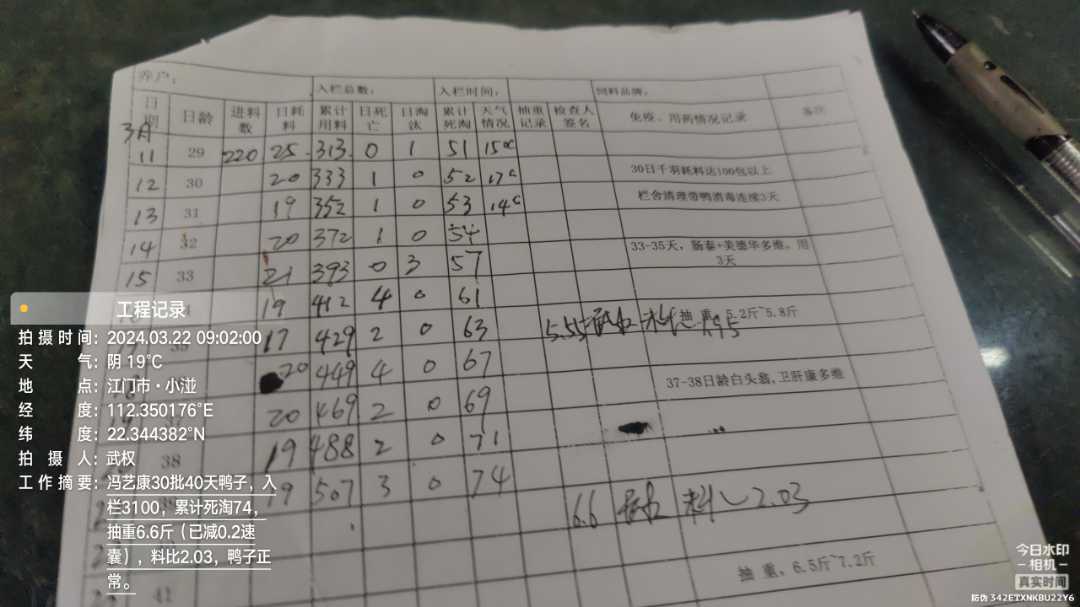 养户： 入栏总数： 入栏时间： 饲料品牌：
日期 日龄 进料数 日耗料 累计用料 日死亡 日淘汰 累计死淘 天气情况 抽重记录 检查人签名 免疫、用药情况记录 备注
3月
11 29 220 25 313 0 1 51 15℃
12 30 20 333 1 0 52 17℃ 30日千羽耗料达100包以上
13 31 19 352 1 0 53 14℃ 栏舍清理带鸭消毒连续3天
14 32 20 372 1 0 54
15 33 21 393 0 3 57 33-35天，肠泰+美德华多维。用3天
19 412 4 0 61
17 429 2 0 63 5.55 料 1.95 抽 重 5.2斤~5.8斤
20 449 4 0 67
20 469 2 0 69 37-38日龄白头翁,卫肝康多维
38 19 488 2 0 71
19 507 3 0 74 6.6 料 2.03
41 抽 重，6.5斤~7.2斤
工程记录
拍摄时间：2024.03.22 09:02:00
天 气：阴 19℃
地 点：江门市·小湴
经 度：112.350176°E
纬 度：22.344382°N
拍 摄 人：武权
工作摘要：冯艺康30批40天鸭子，入
栏3100，累计死淘74，
抽重6.6斤（已减0.2速
囊），料比2.03，鸭子正
常。
今日水印
相机
真实时间
防伪 342ETXNKBU22Y6